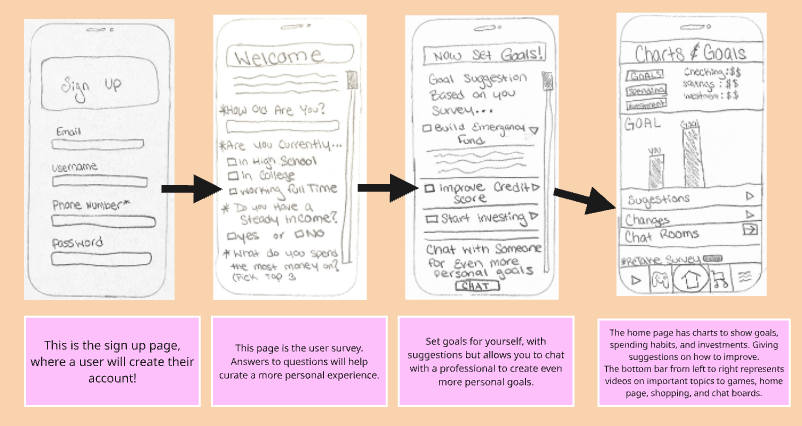 Sign UP
Email
Username
Phone Number*
Password
Welcome
*How Old Are You?
*Are you Currently...
In High School
In College
Working Full Time
* Do you Have a
Steady Income?
yes or No
*What do you spend
the most money on?
(Pick Top 3
Now Set Goals!
Goal Suggestion
Based on you
Survey...
Build Emergency
Fund
Improve Credit
Score
Start Investing
Chat with Someone
for Even more
personal goals
CHAT
Charts & Goals
GOALS
Spending
Investment
Checking: $$
Savings: $$
Investment: $$
GOAL
you
Goal
Sugestions
Changes
Chat Rooms
*Retake Survey
This is the sign up page,
where a user will create their
account!
This page is the user survey.
Answers to questions will help
curate a more personal experience.
Set goals for yourself, with
suggestions but allows you to chat
with a professional to create even
more personal goals.
The home page has charts to show goals,
spending habits, and investments. Giving
suggestions on how to improve.
The bottom bar from left to right represents
videos on important topics to games, home
page, shopping, and chat boards.